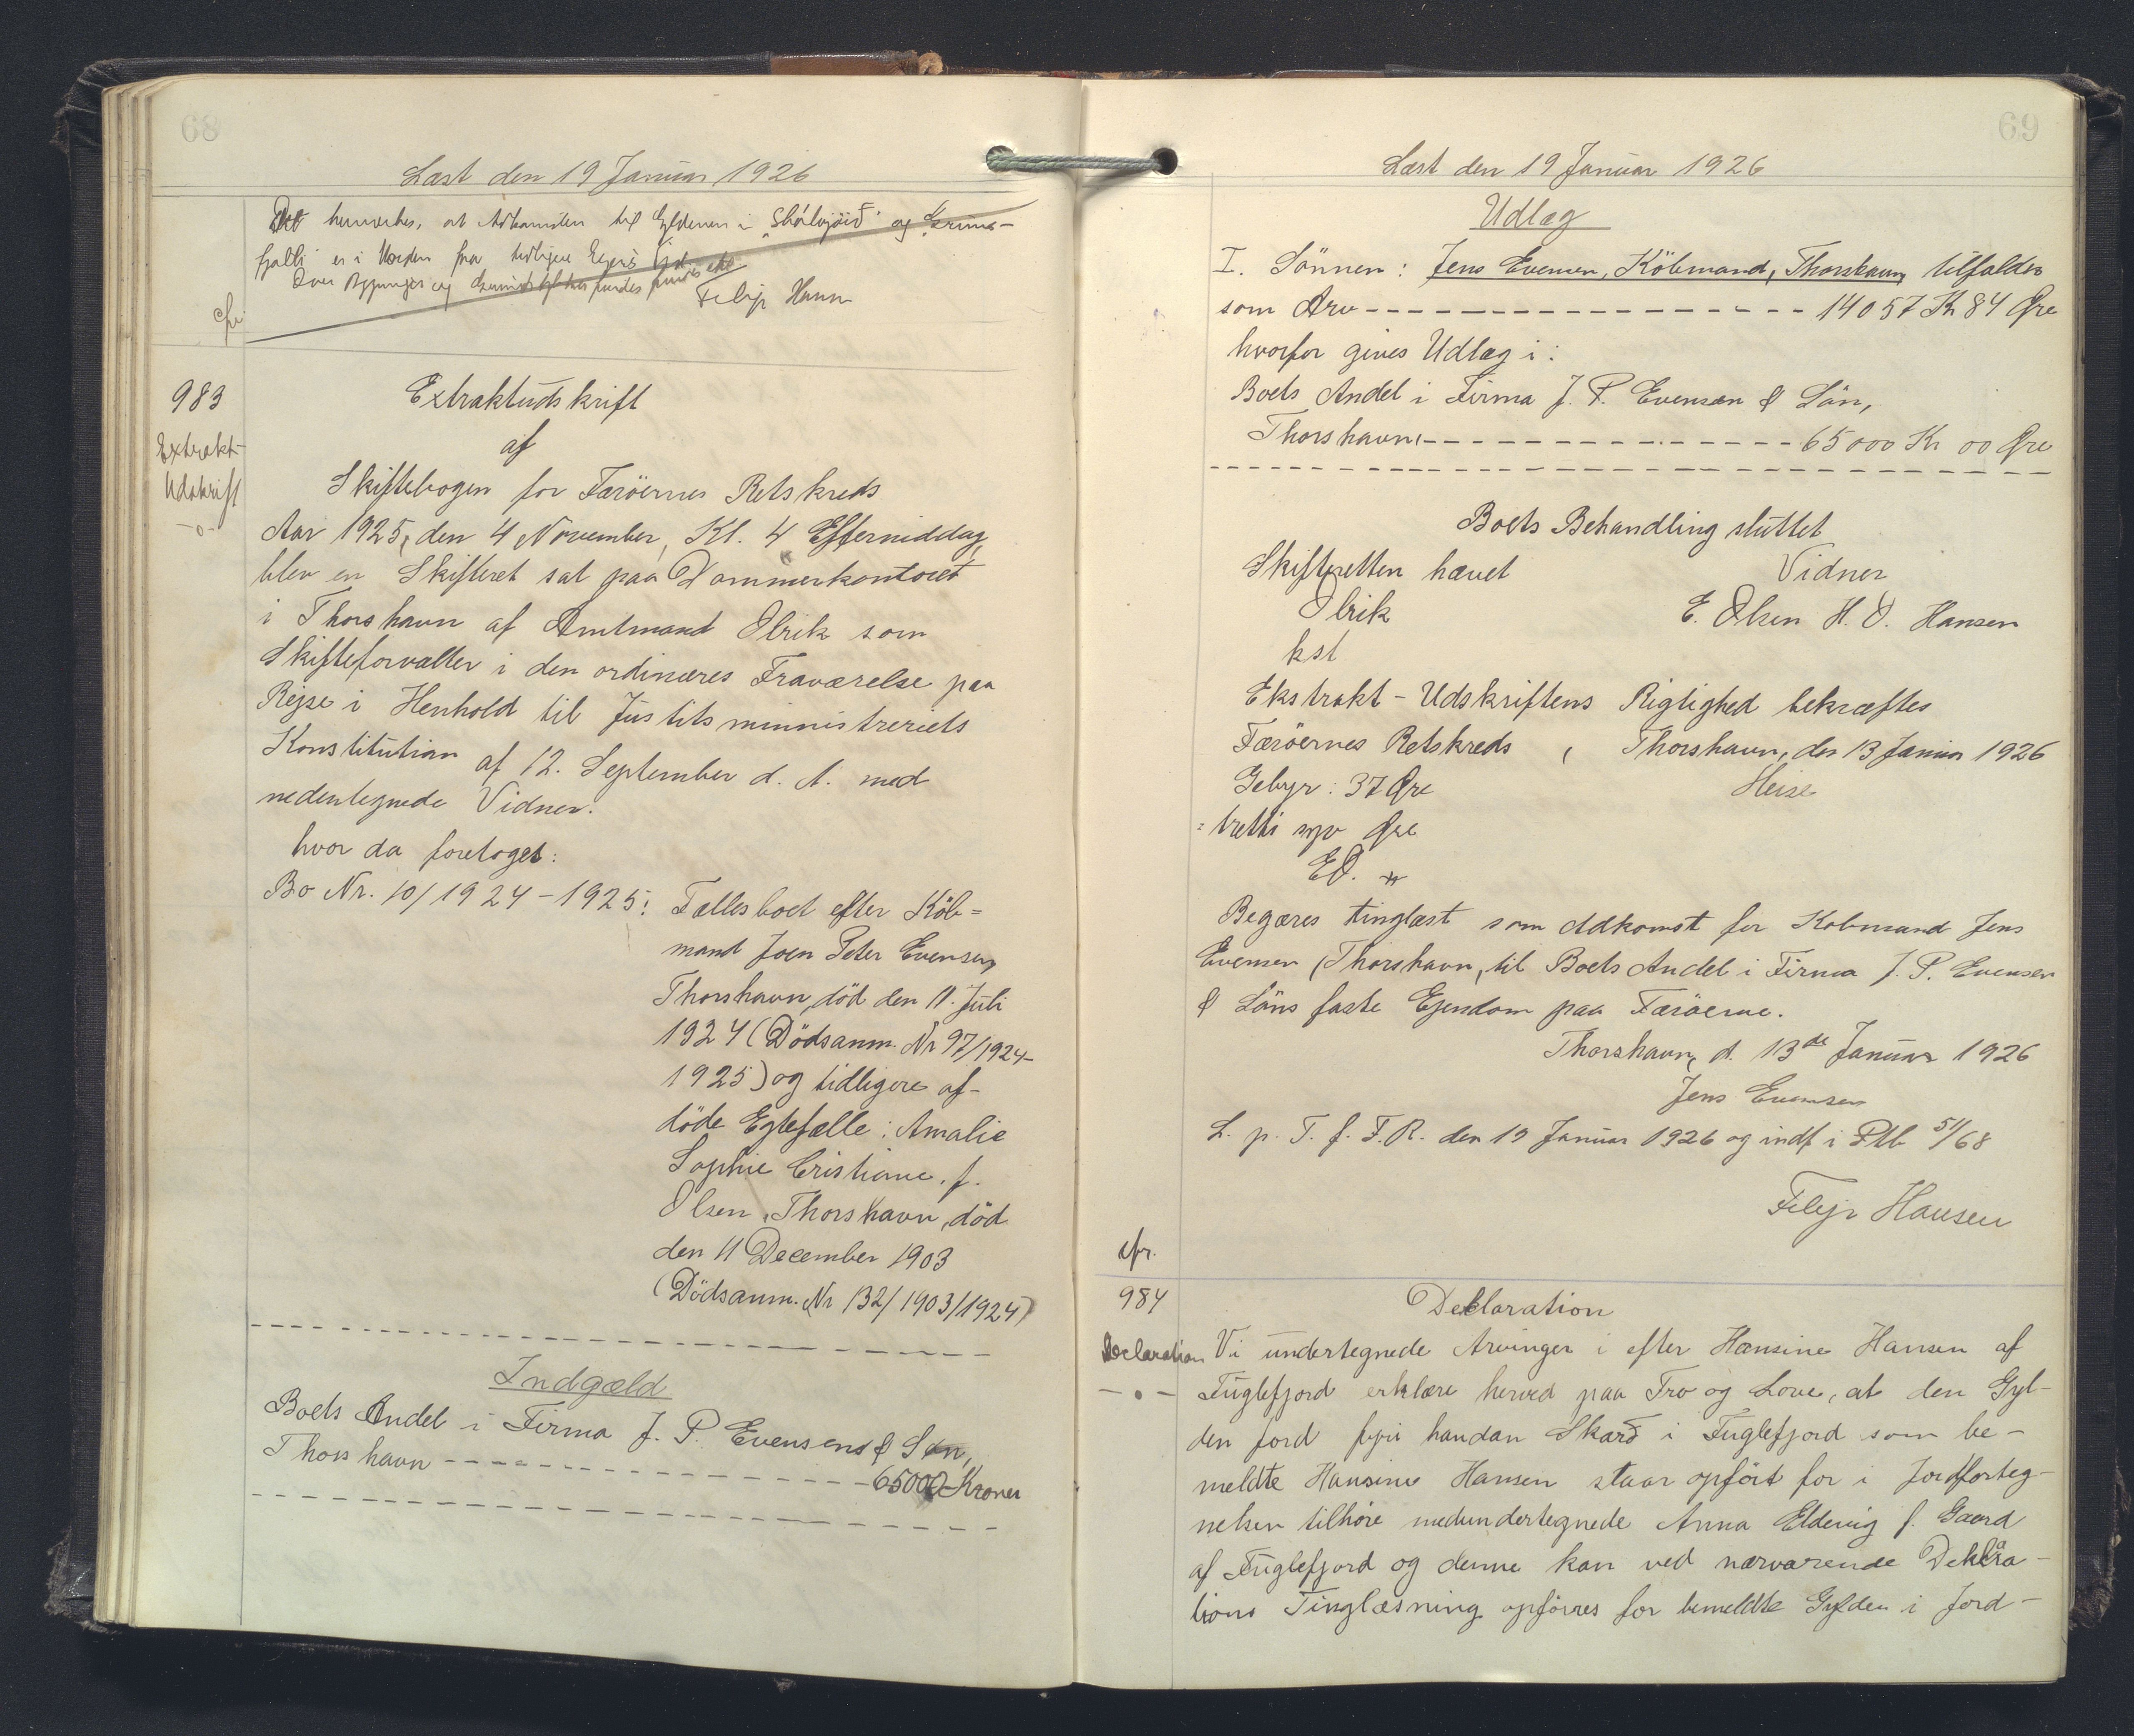 68
Læst den 19 Januar 1926
Det bemærkes, at Adkomsten til Gyldenen i "Skálvjóið" og
fjalli er i Norden fra tidligere Ejers
Over Bygninger og
Filip Hansen
cfr.
983
Extrakt-
Udskrift
-o-
Extraktudskrift
af
Skiftebogen for Færöernes Retskreds
Aar 1925, den 4 November, Kl. 4 Eftermiddag,
blev en Skifteret sat paa Dommerkontoret
i Thorshavn af Amtmand Olrik som
Skifteforvalter i den ordinæres Fraværelse paa
Rejse i Henhold til Justitsministreriets
Konstitution af 12. September d. A. med
nedentegnede Vidner.
hvor da foretoges:
Bo Nr. 10/1924-1925: Fællesboet efter Köb=
mand Joen Peter Evensen,
Thorshavn, död den 11. Juli
1924 (Dödsanm. Nr 97/1924-
1925) og tidligere af-
döde Egtefælle: Amalie
Sophie Cristiane, f.
Olsen, Thorshavn, död
den 11 December 1903
(Dödsanm. Nr 132/1903/1924)
Indgæld
Boets Andel i Firma J. P. Evensens & Søn,
Thorshavn - - - - - - - - - - - - - - - 65000 Kroner
69
Læst den 19 Januar 1926
Udlæg
I. Sönnen: Jens Evensen, Köbmand, Thorshavn, tilfalder
som Arv - - - - - - - - - - - - - - - 14057 Kr 84 Øre
hvorfor gives Udlæg i:
Boets Andel i Firma J. P. Evensen & Sön,
Thorshavn, - - - - - - - - - - - - - - - 65000 Kr 00 Øre
Boets Behandling sluttet
Skifteretten hævet Vidner
Olrik E. Olsen H. O. Hansen
kst
Ekstrakt-Udskriftens Rigtighed bekræftes
Færöernes Retskreds, Thorshavn, den 13 Januar 1926
Gebyr: 37 Øre Heise
= tretti syv Øre
EO.
Begæres tinglæst som Adkomst for Kobmand Jens
Evensen, Thorshavn, til Boets Andel i Firma J. P. Evensen
& Söns faste Ejendom paa Færöerne.
Thorshavn, d. 13de Januar 1926
Jens Evensen
L. p. T. f. F. R. den 19 Januar 1926 og indf i Ptb 51/68
Filip Hansen
cfr.
984
Declaration
- o -
Declaration
Vi undertegnede Arvinger i efter Hansine Hansen af
Fuglefjord erklære herved paa Tro og Love, at den Gyl-
den Jord fyri handan Skarð i Fuglefjord som be-
meldte Hansine Hansen staar opført for i Jordforteg-
nelsen tilhøre medundertegnede Anna Eldevig f. Gaard
af Fuglefjord og denne kan ved nærværende Deklara-
tions Tinglæsning opförres for bemeldte Gylden i Jord-